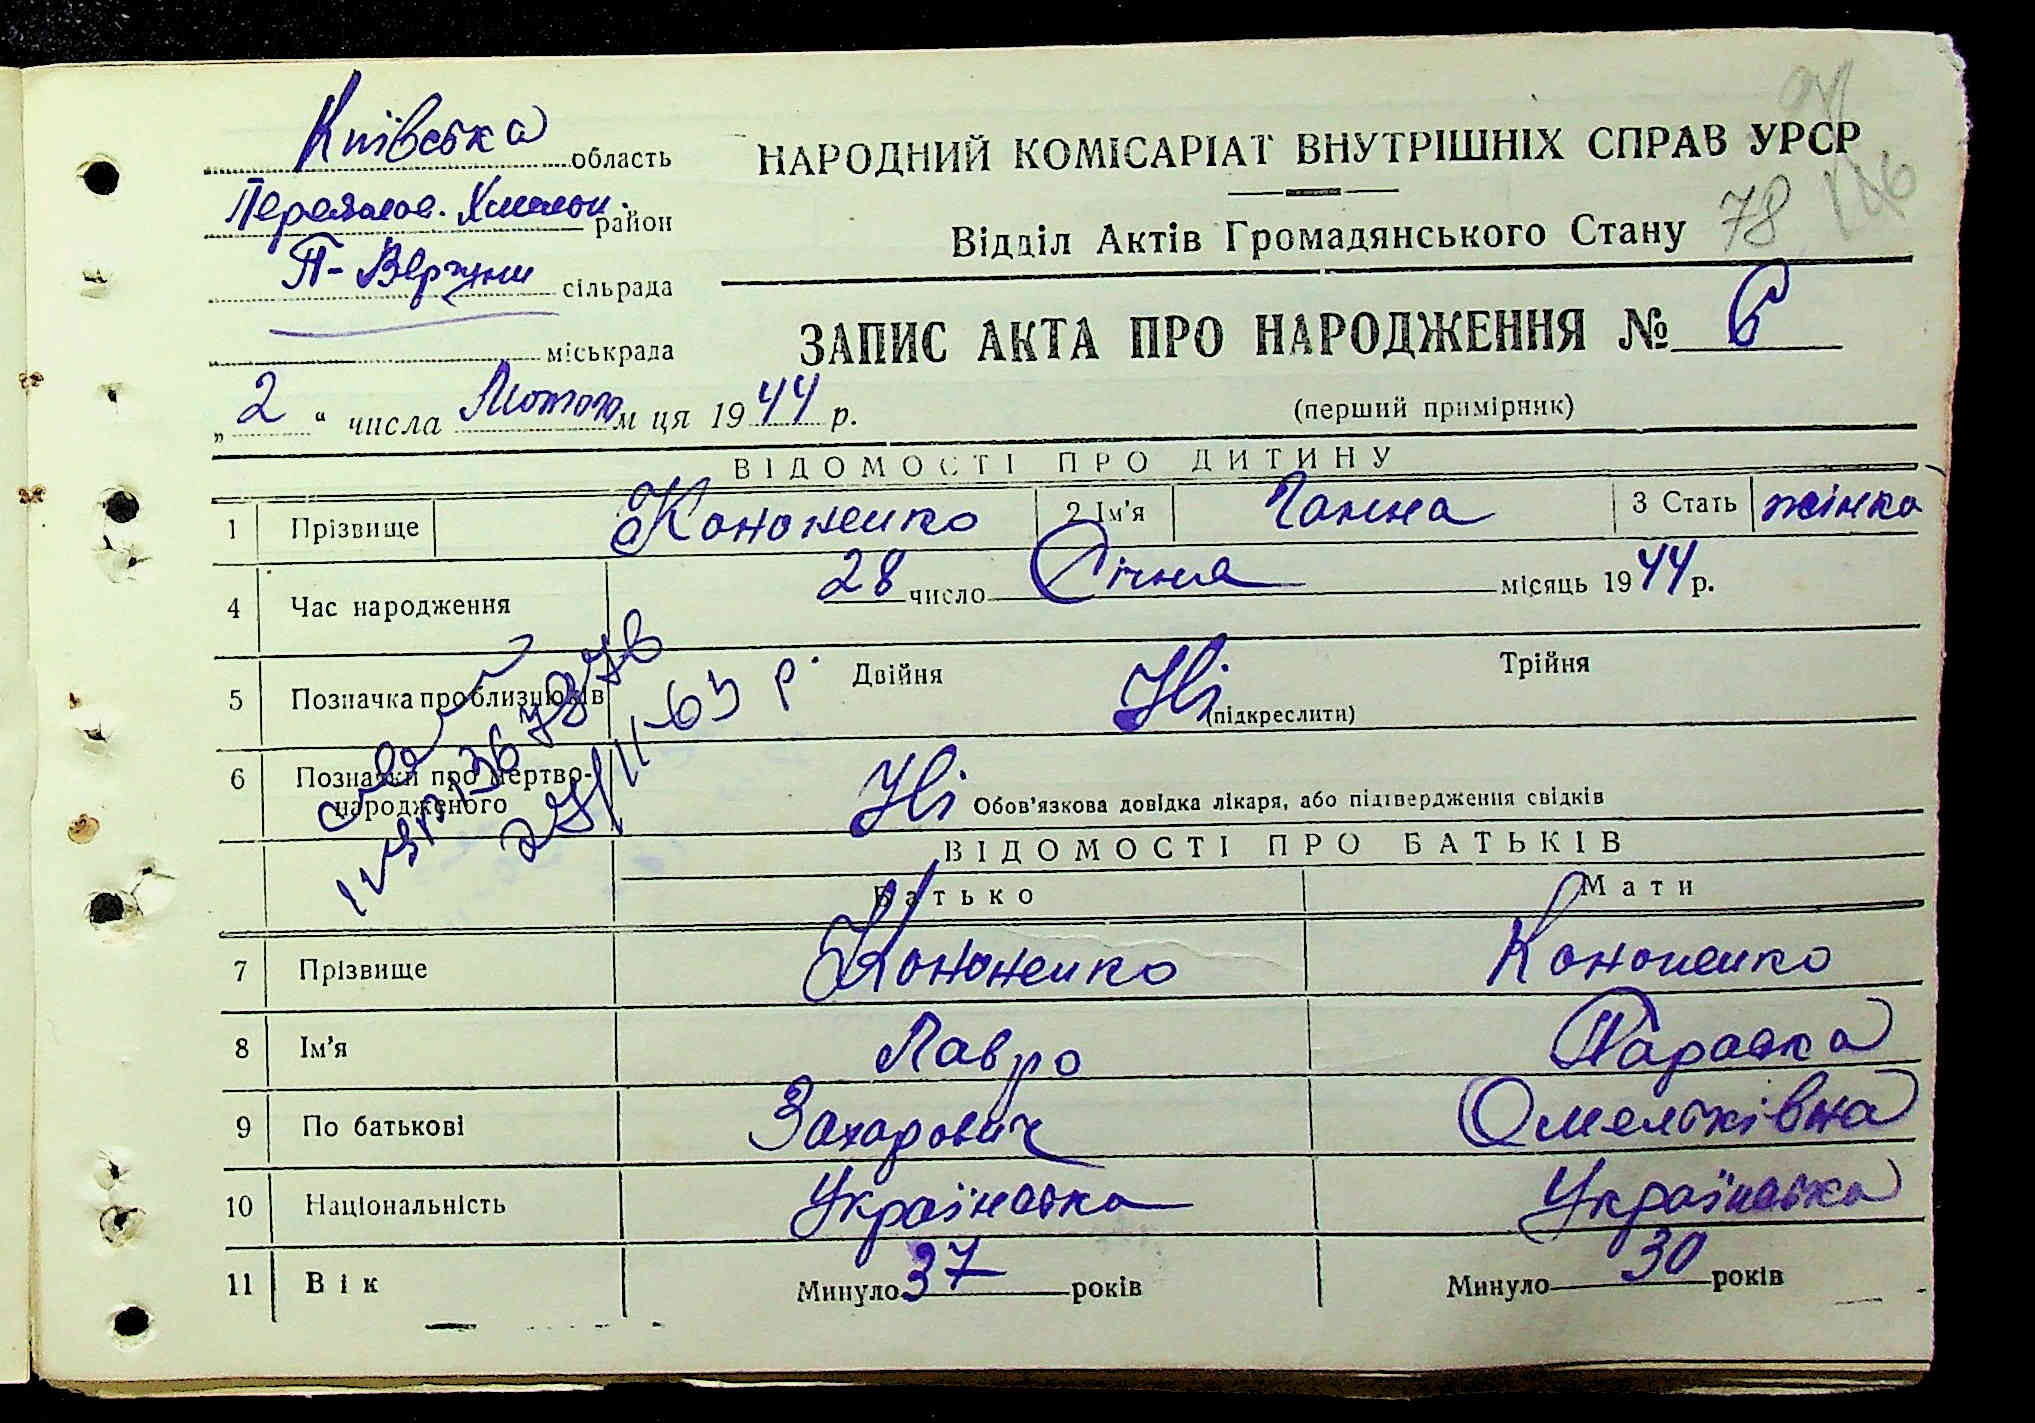 Київська область
Переяслов. Хмельн. район
П- Вергуни сільрада
міськрада
„2“ числа Лютого м ця 1944 р.
НАРОДНИЙ КОМІСАРІАТ ВНУТРІШНІХ СПРАВ УРСР
Відділ Актів Громадянського Стану 78
ЗАПИС АКТА ПРО НАРОДЖЕННЯ № 6
(перший примірник)
ВІДОМОСТІ ПРО ДИТИНУ
1 Прізвище Кононенко 2 Ім'я Ганна 3 Стать жінка
4 Час народження 28 число Січня місяць 1944 р.
5 Позначка про близнюків Двійня Ні (підкреслити) Трійня
6 Позначки про мертво-
народженого Ні Обов'язкова довідка лікаря, або підтвердження свідків
ВІДОМОСТІ ПРО БАТЬКІВ
Батько Мати
7 Прізвище Кононенко Кононенко
8 Ім'я Лавро Параска
9 По батькові Захарович Омельківна
10 Національність Українська Українська
11 Вік Минуло 37 років Минуло 30 років